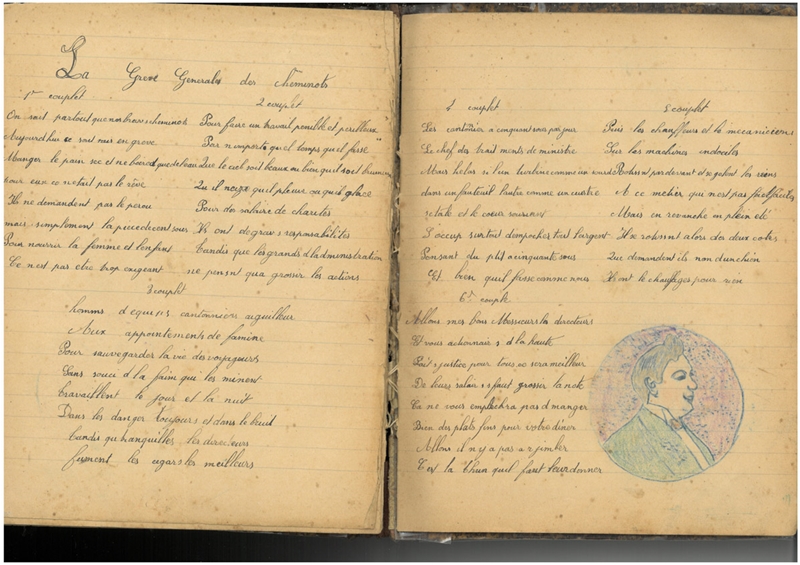 La Greve Generale des Cheminots
1er couplet
On sait partout que nos braves cheminots
Aujourd'hui se sont mis en greve
Manger le pain sec et ne boire que de l'eau
pour eux ce n'etait pas le rêve
Ils ne demandent pas le perou
mais simplement la piece de cent sous
Pour nourrir la femme et l'enfant
Ce n'est pas etre trop exigeant
2 couplet
Pour faire un travail penible et perilleux
Par n'importe quel temps qu'il fasse
Que le ciel soit beau ou bien qu'il soit brumeux
Qu'il neige qu'il pleuve ou qu'il glace
Pour des salaire de charites
Ils ont de graves responsabilites
Tandis que les grands d l'administration
ne pensent qu a grossir les actions
3 couplet
homms d equips cantonniers aiguilleur
Aux appointements de famine
Pour sauvegarder la vie des voyageurs
Sans souci d la faim qui les minent
Travaillent le jour et la nuit
Dans les danger toujours et dans le bruit
Tandis qu tranquilles les directeurs
fument les cigars les meilleurs
4 couplet
Les cantonnier a cinquant sous par jour
Le chef des trait ments de ministre
Mais helas si l'un turbine comme un sourd
dans un fauteuil l'autre comme un cuistre
s etale et le coeur souriant
L'occup surtout d'empocher tout l'argent
Pensant du ptit a cinquante sous
Est bien qu'il fasse comme nous
5 couplet
Puis les chauffeurs et le mecaniciens
Sur les machines endociles
Rotissent par devant et se gelent les reins
A ce metier qui n'est pas facile
Mais en revanche en plein eté
Il se rotissent alors des deux cotés
Que demandent ils non d'un chien
Ils ont le chauffage pour rien
6e couple
Allons mes bons Messieurs les directeurs
Et vous actionnair s d la haute
Fait s justice pour tous ce sera meilleur
De leurs salair s faut grossir la note
Ca ne vous empechra pas d manger
Bien des plats fins pour votre diner
Allons il n y a pas a r gimber
C'est la Thun qu'il faut leur donner